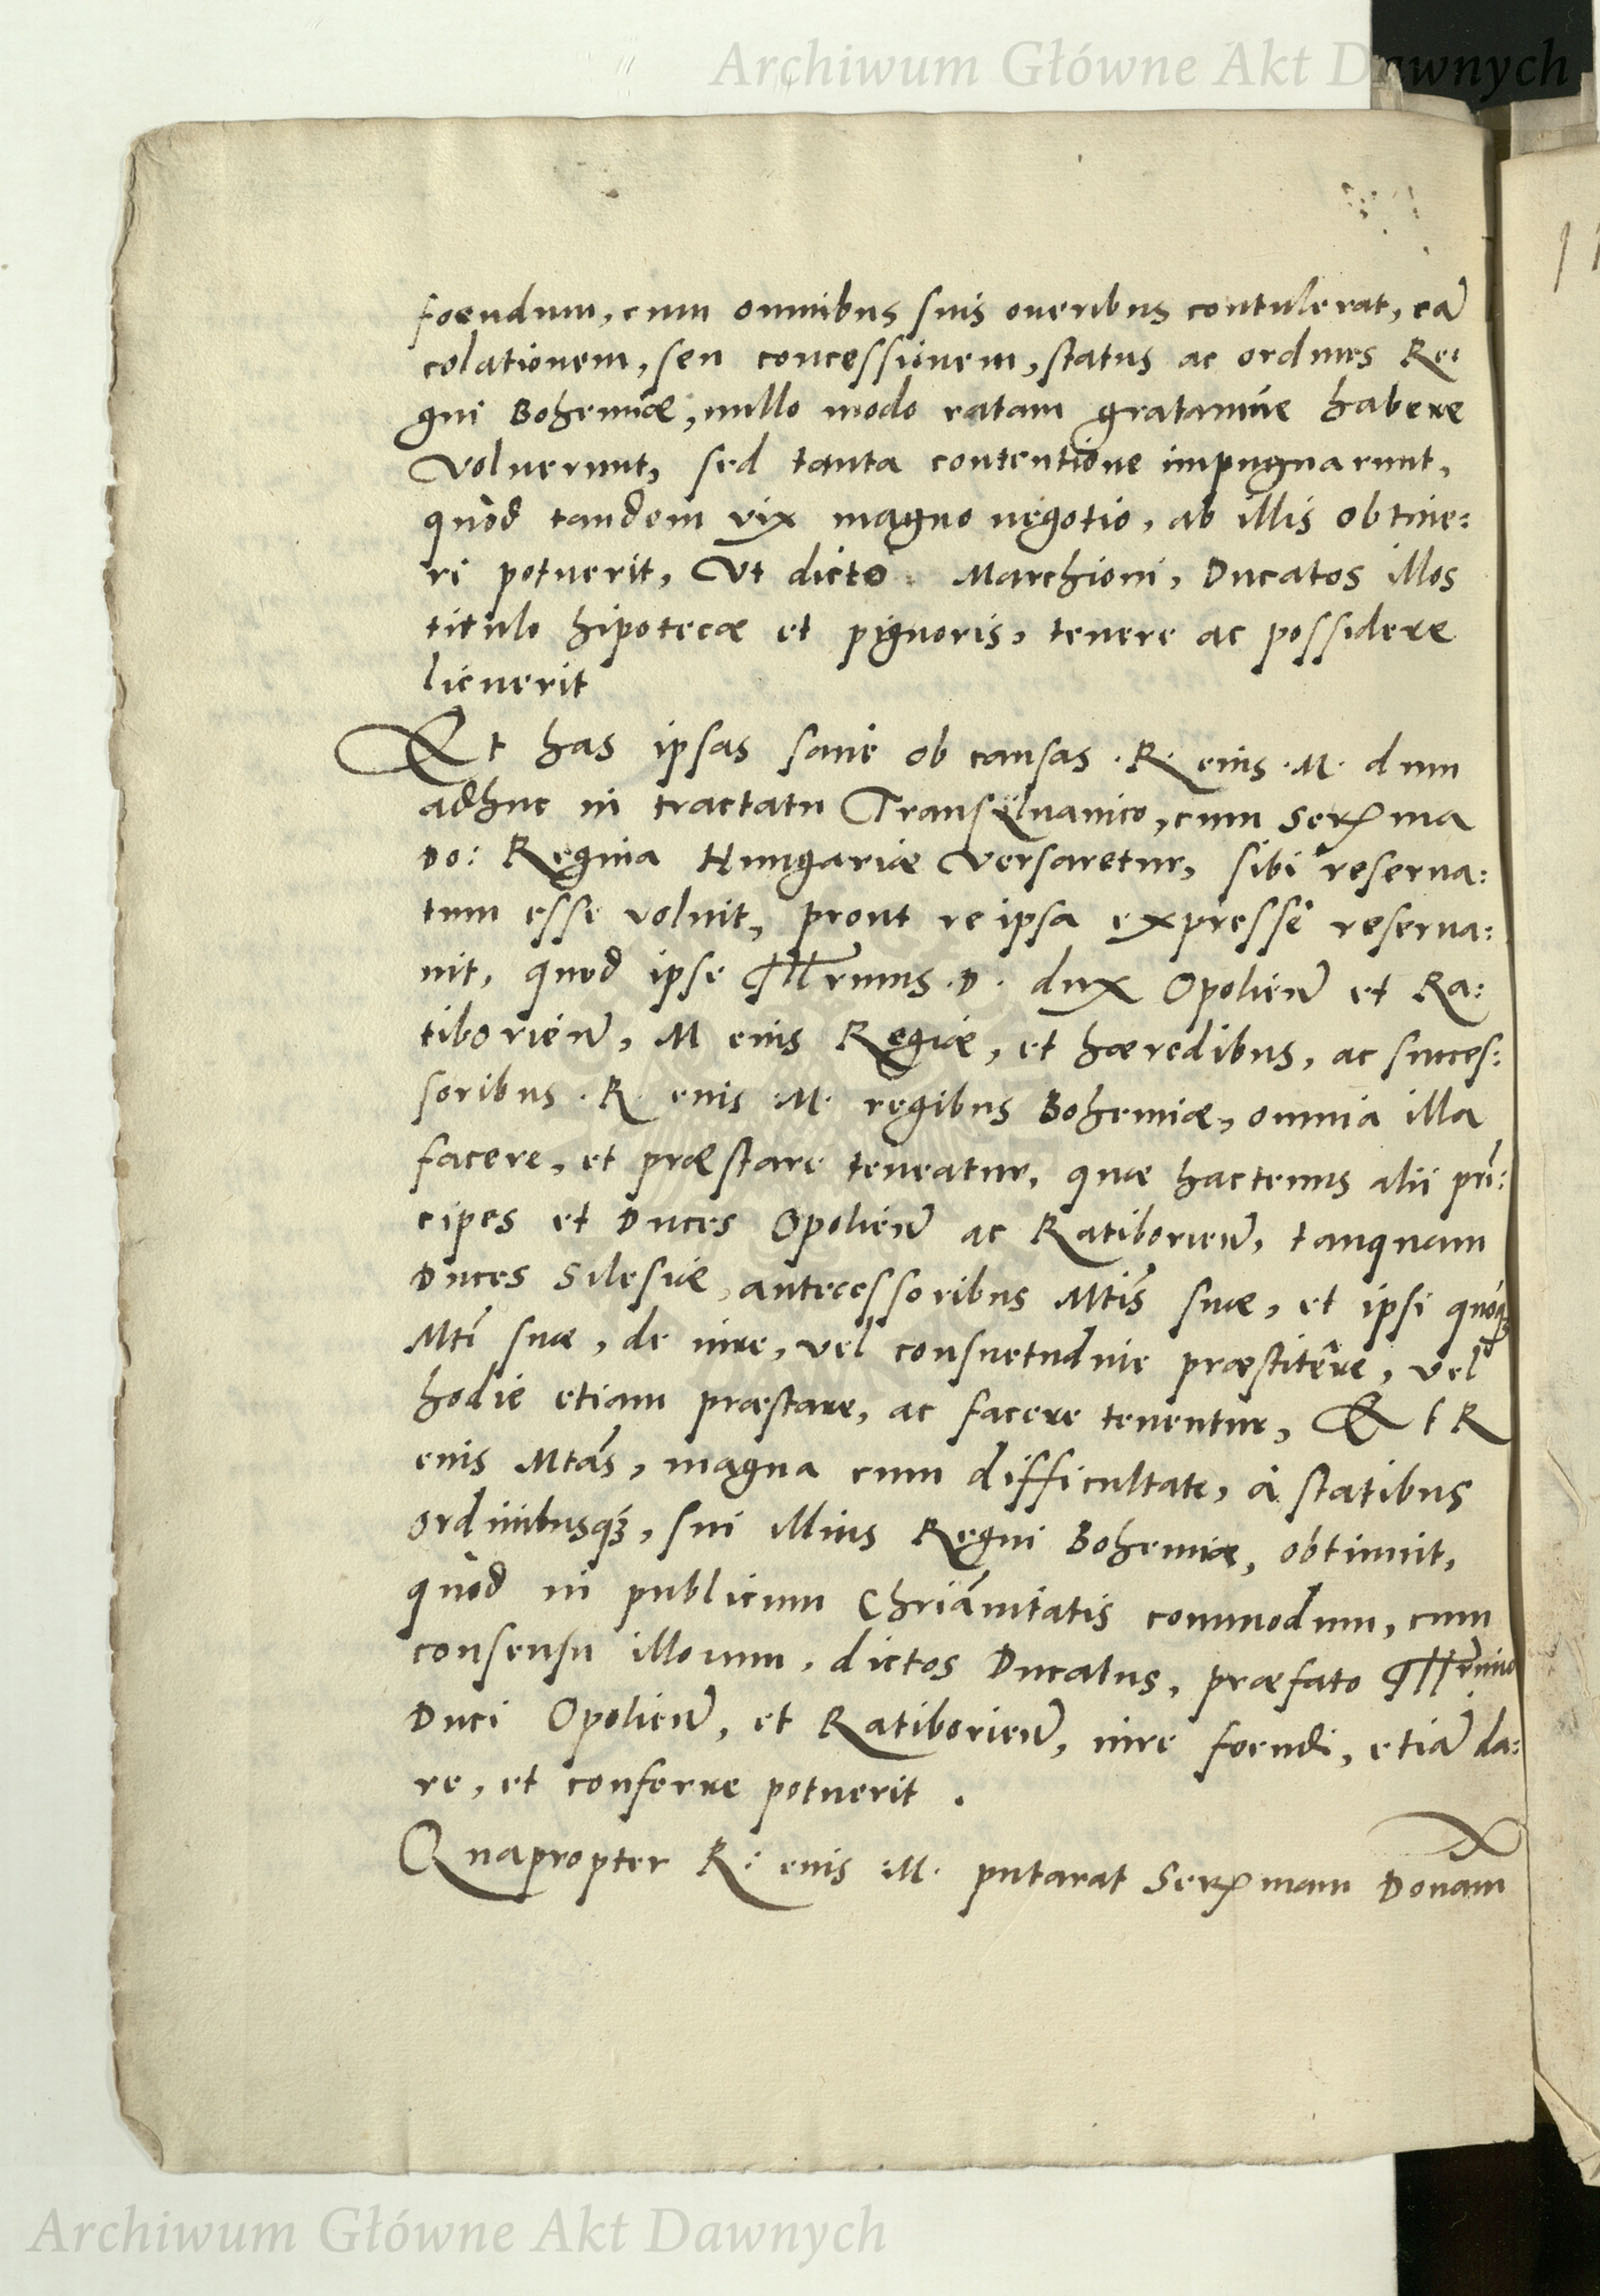 Archiwum Główne Akt Dawnych
foeudum, cum omnibus suis oneribus contulerat, eã
colationem, seu concessionem, status ac ordines Re:
gni Bohemiæ, nullo modo ratam gratamúe habere
voluerunt, sed tanta contentione impugnarunt,
quòd tandem vix magno negotio, ab illis obtine:
ri potuerit, Ut dicto Marchioni, Ducatos illos
titulo hipotecæ et pignoris, tenere ac possidere
licuerit
Et has ipsas sane ob causas .R. eius .M. dum
adhuc in tractatu Transyluanico, cum Serma
Do: Regina Hungariæ versaretur, sibi reserua:
tum esse voluit, prout re ipsa expressè reserua:
uit, quod ipse Illrmus .D. dux Opolien̄ et Ra:
tiborien̄, M eius Regiæ, et hæredibus, ac succes:
soribus .R. eius .M. regibus Bohemiæ, omnia illa
facere, et præstare teneatur, quæ hactenus alii prī:
cipes et Duces Opolien̄ ac Ratiborien̄, tanquam
Duces Silesiæ, antecessoribus Mtis̄ suæ, et ipsi quóq;
Mti̅ suæ, de iure, vel consuetudine præstitêre, vel
hodie etiam præstare, ac facere tenentur, Et R
eius Mtas̄, magna cum difficultate, à statibus
ordinibusq;, sui illius Regni Bohemiæ, obtinuit,
quòd in publicum Chriãnitatis commodum, cum
consensu illorum, dictos Ducatus, præfato Illrmo
Duci Opolien̄, et Ratiborien̄, iure foeudi, etiã da:
re, et conferre potuerit .
Quapropter R: eius :M. putarat Sermam Donam
Archiwum Główne Akt Dawnych